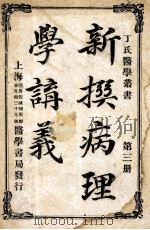 丁氏醫學叢書
第三册
新撰病理
學講義
上海
醫學書局發行